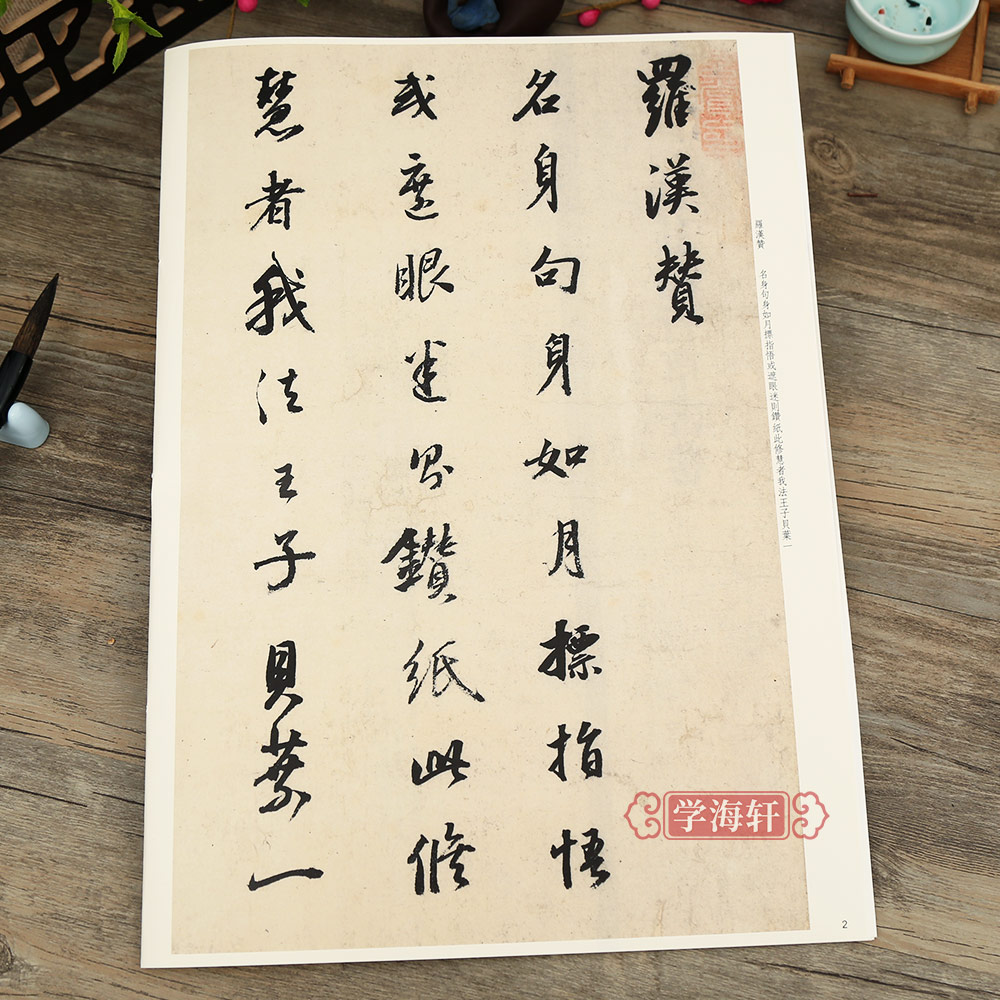 羅漢贊
名身句身如月標指悟
或遮眼迷則鑽紙此修
慧者我法王子貝葉一
羅漢贊 名身句身如月標指悟或遮眼迷則鑽紙此修慧者我法王子貝葉一
学海轩
2